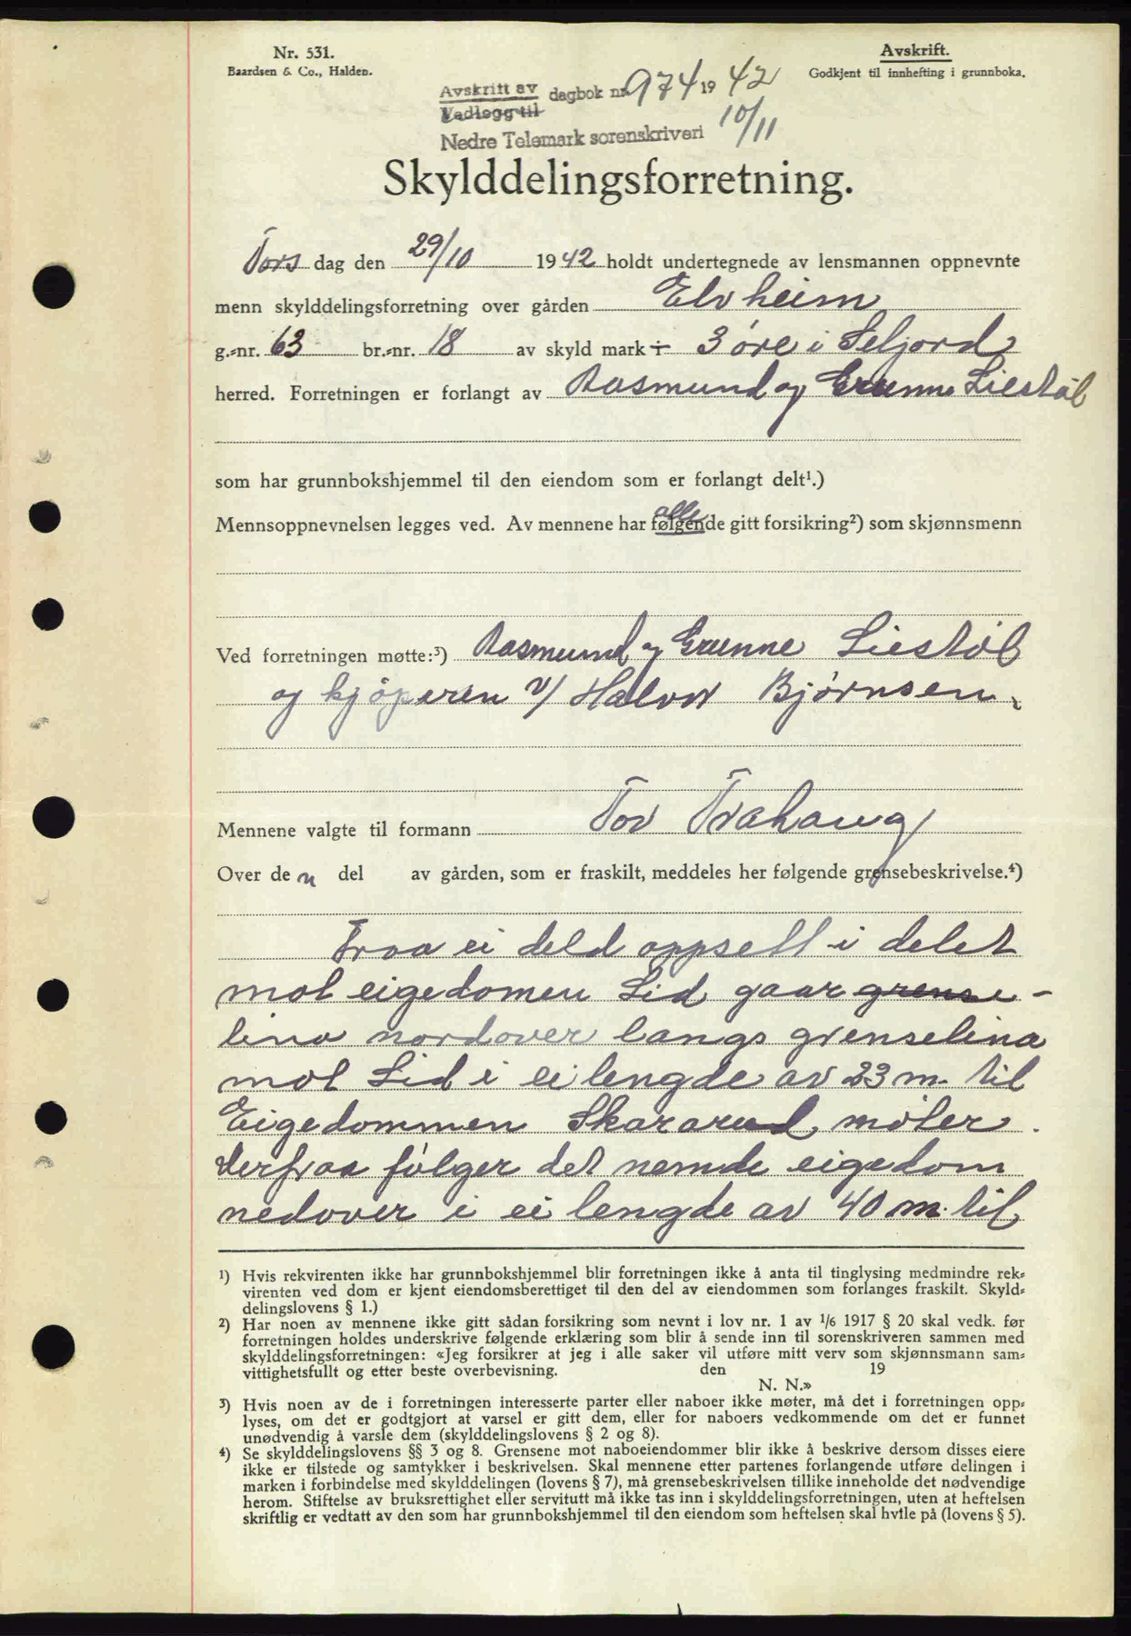 Nr. 531.
Baardsen & Co., Halden.
Avskrift.
Godkjent til innhefting i grunnboka.
Avskrift av
Vedlegg til
dagbok nr. 974 19 42
10/11
Nedre Telemark sorenskriveri
Skylddelingsforretning.
Tors dag den 29/10 1942 holdt undertegnede av lensmannen oppnevnte
menn skylddelingsforretning over gården Elvheim
g.-nr. 63 br.-nr. 18 av skyld mark ÷ 3 øre i Seljord
herred. Forretningen er forlangt av Rasmund og Gunne Liestøl
som har grunnbokshjemmel til den eiendom som er forlangt delt¹.)
Mennsoppnevnelsen legges ved. Av mennene har alle følgende gitt forsikring²) som skjønnsmenn
Ved forretningen møtte:³) Rasmund og Gunne Liestøl
og kjøperen v/ Halvor Bjørnsen.
Mennene valgte til formann Tov Trahaug
Over den del av gården, som er fraskilt, meddeles her følgende grensebeskrivelse.⁴)
Fraa ei deld oppsett i delet
mot eigedomen Lid gaar grense-
lina nordover langs grenselina
mot Lid i ei lengde av 23 m. til
Eigedommen Skararud møter.
Derfraa følger det nemde eigedom
nedover i ei lengde av 40 m. til
¹) Hvis rekvirenten ikke har grunnbokshjemmel blir forretningen ikke å anta til tinglysing medmindre rek-
virenten ved dom er kjent eiendomsberettiget til den del av eiendommen som forlanges fraskilt. Skyld-
delingslovens § 1.)
²) Har noen av mennene ikke gitt sådan forsikring som nevnt i lov nr. 1 av 1/6 1917 § 20 skal vedk. før
forretningen holdes underskrive følgende erklæring som blir å sende inn til sorenskriveren sammen med
skylddelingsforretningen: «Jeg forsikrer at jeg i alle saker vil utføre mitt verv som skjønnsmann sam-
vittighetsfullt og etter beste overbevisning. den 19
N. N.»
³) Hvis noen av de i forretningen interesserte parter eller naboer ikke møter, må det i forretningen opp-
lyses, om det er godtgjort at varsel er gitt dem, eller for naboers vedkommende om det er funnet
unødvendig å varsle dem (skylddelingslovens § 2 og 8).
⁴) Se skylddelingslovens §§ 3 og 8. Grensene mot naboeiendommer blir ikke å beskrive dersom disses eiere
ikke er tilstede og samtykker i beskrivelsen. Skal mennene etter partenes forlangende utføre delingen i
marken i forbindelse med skylddelingen (lovens § 7), må grensebeskrivelsen tillike inneholde det nødvendige
herom. Stiftelse av bruksrettighet eller servitutt må ikke tas inn i skylddelingsforretningen, uten at heftelsen
skriftlig er vedtatt av den som har grunnbokshjemmel til den eiendom som heftelsen skal hvile på (lovens § 5).